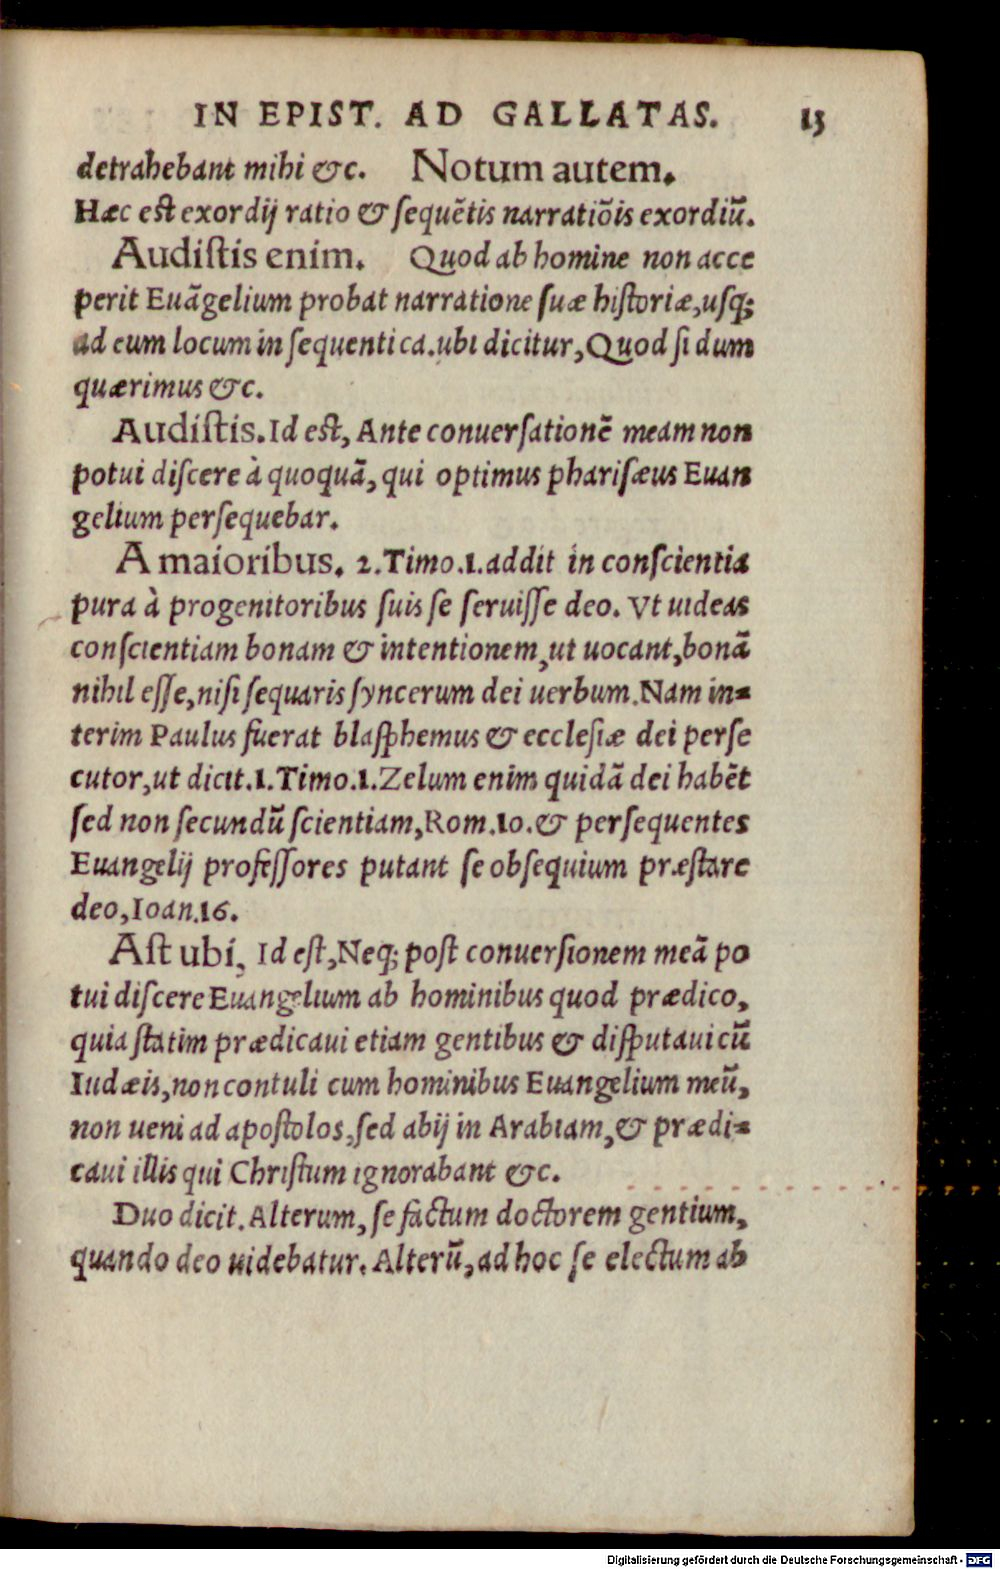 IN EPIST. AD GALLATAS. 13
detrahebant mihi &c. Notum autem.
Hæc est exordij ratio & ſequẽtis narratiõis exordiũ.
Audiſtis enim. Quod ab homine non acce
perit Euãgelium probat narratione ſuæ hiſtoriæ,uſq;
ad eum locum in ſequenti ca.ubi dicitur,Quod ſi dum
quærimus &c.
Audiſtis.Id eſt, Ante conuerſationẽ meam non
potui diſcere à quoquã, qui optimus phariſæus Euan
gelium perſequebar.
A maioribus. 2.Timo.1.addit in conſcientia
pura à progenitoribus ſuis ſe ſeruiſſe deo. Vt uideas
conſcientiam bonam & intentionem,ut uocant,bonã
nihil eſſe,niſi ſequaris ſyncerum dei uerbum.Nam in=
terim Paulus fuerat blaſphemus & eccleſiæ dei perſe
cutor,ut dicit.1.Timo.1.Zelum enim quidã dei habẽt
ſed non ſecundũ ſcientiam,Rom.10.& perſequentes
Euangelij profeſſores putant ſe obſequium præſtare
deo,Ioan.16.
Aſt ubi, Id eſt,Neq; poſt conuerſionem meã po
tui diſcere Euangelium ab hominibus quod prædico,
quia ſtatim prædicaui etiam gentibus & diſputaui cũ
Iudæis,non contuli cum hominibus Euangelium meũ,
non ueni ad apoſtolos,ſed abij in Arabiam,& prædi=
caui illis qui Chriſtum ignorabant &c.
Duo dicit.Alterum, ſe factum doctorem gentium,
quando deo uidebatur.Alterũ,ad hoc ſe electum ab
Digitalisierung gefördert durch die Deutsche Forschungsgemeinschaft - DFG